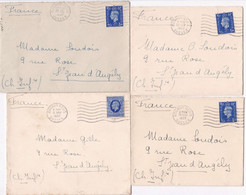 France
Madame Loudois
9 rue Rose
St Jean d'Angély
(Ch. Inf.)
France
Madame O. Loudois
9 rue Rose
St Jean d'Angély
(Ch. Inf.)
France
Madame
9 rue Rose
St Jean d'Angély
(Ch. Inf.)
France
Madame Loudois
9 rue Rose
St Jean d'Angély
(Ch. Inf.)